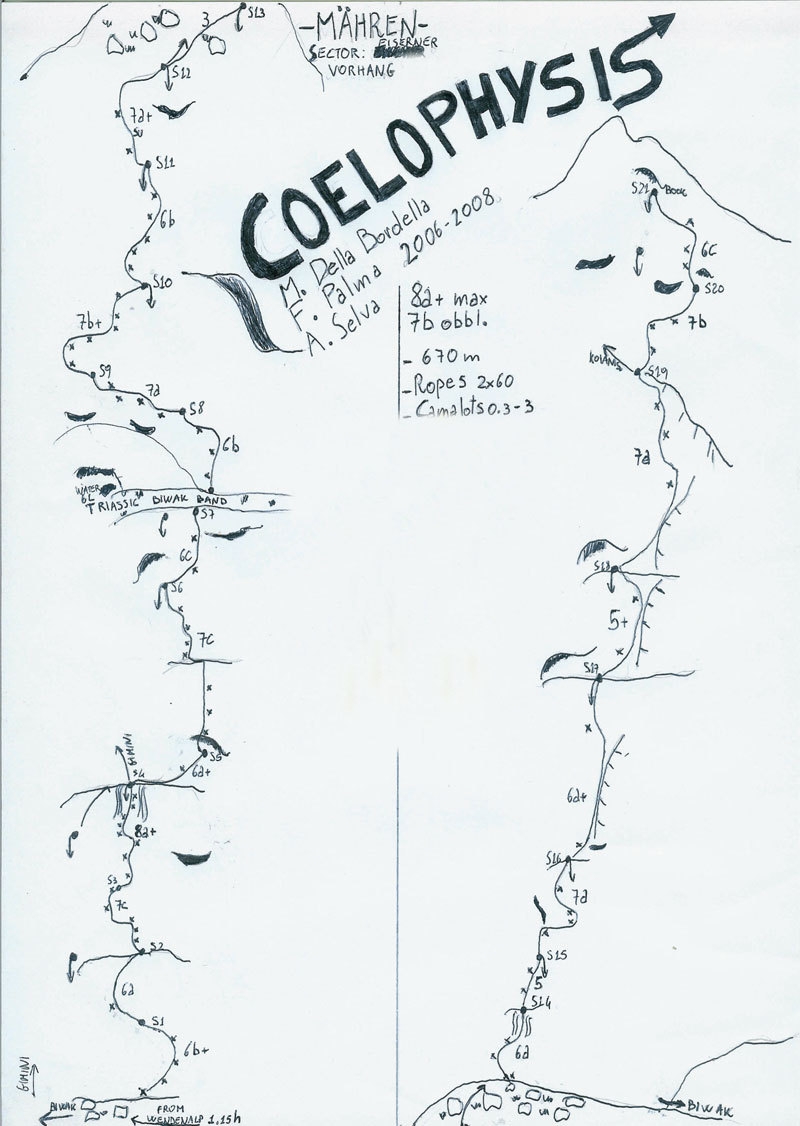 -MÄHREN-
SECTOR: EISERNER
VORHANG
COELOPHYSIS
M. Della Bordella
F. Palma 2006-2008
A. Selva
8a+ max
7b obbl.
- 670 m
- Ropes 2x60
- Camalots 0.3-3
S13
3
S12
7a+
S11
6b
S10
7b+
S9
7a
S8
6b
WATER
6L
TRIASSIC BIWAK BAND
S7
6c
S6
7c
S5
6a+
GIMINI
S4
8a+
S3
7c
S2
6a
S1
6b+
GIMINI
BIWAK
FROM
WENDENALP 1,15h
S21 BOOK
6c
S20
7b
S19
KOLANIS
7a
S18
5+
S17
6a+
S16
7a
S15
5
S14
6a
BIWAK